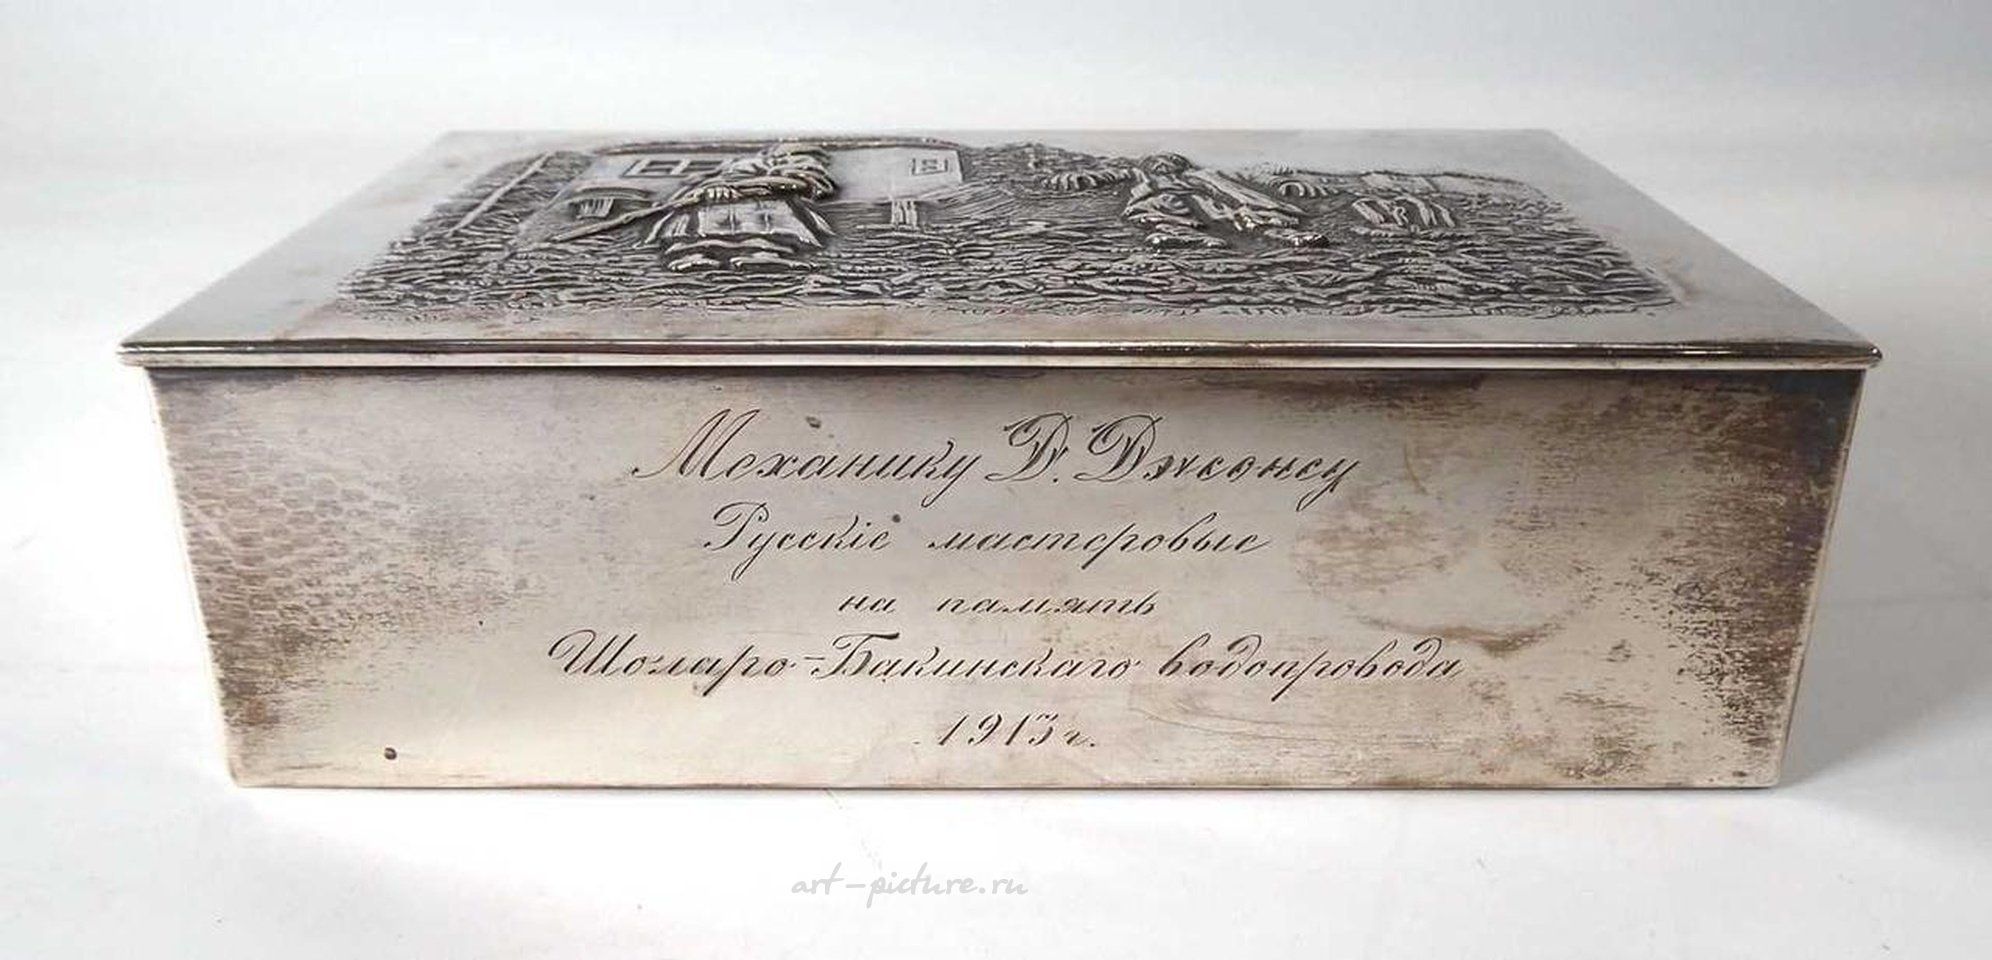 Механику Д. Джонсу
Русскіе мастеровые
на память
Шоларо-Бакинскаго водопровода
1913 г.
art-picture.ru